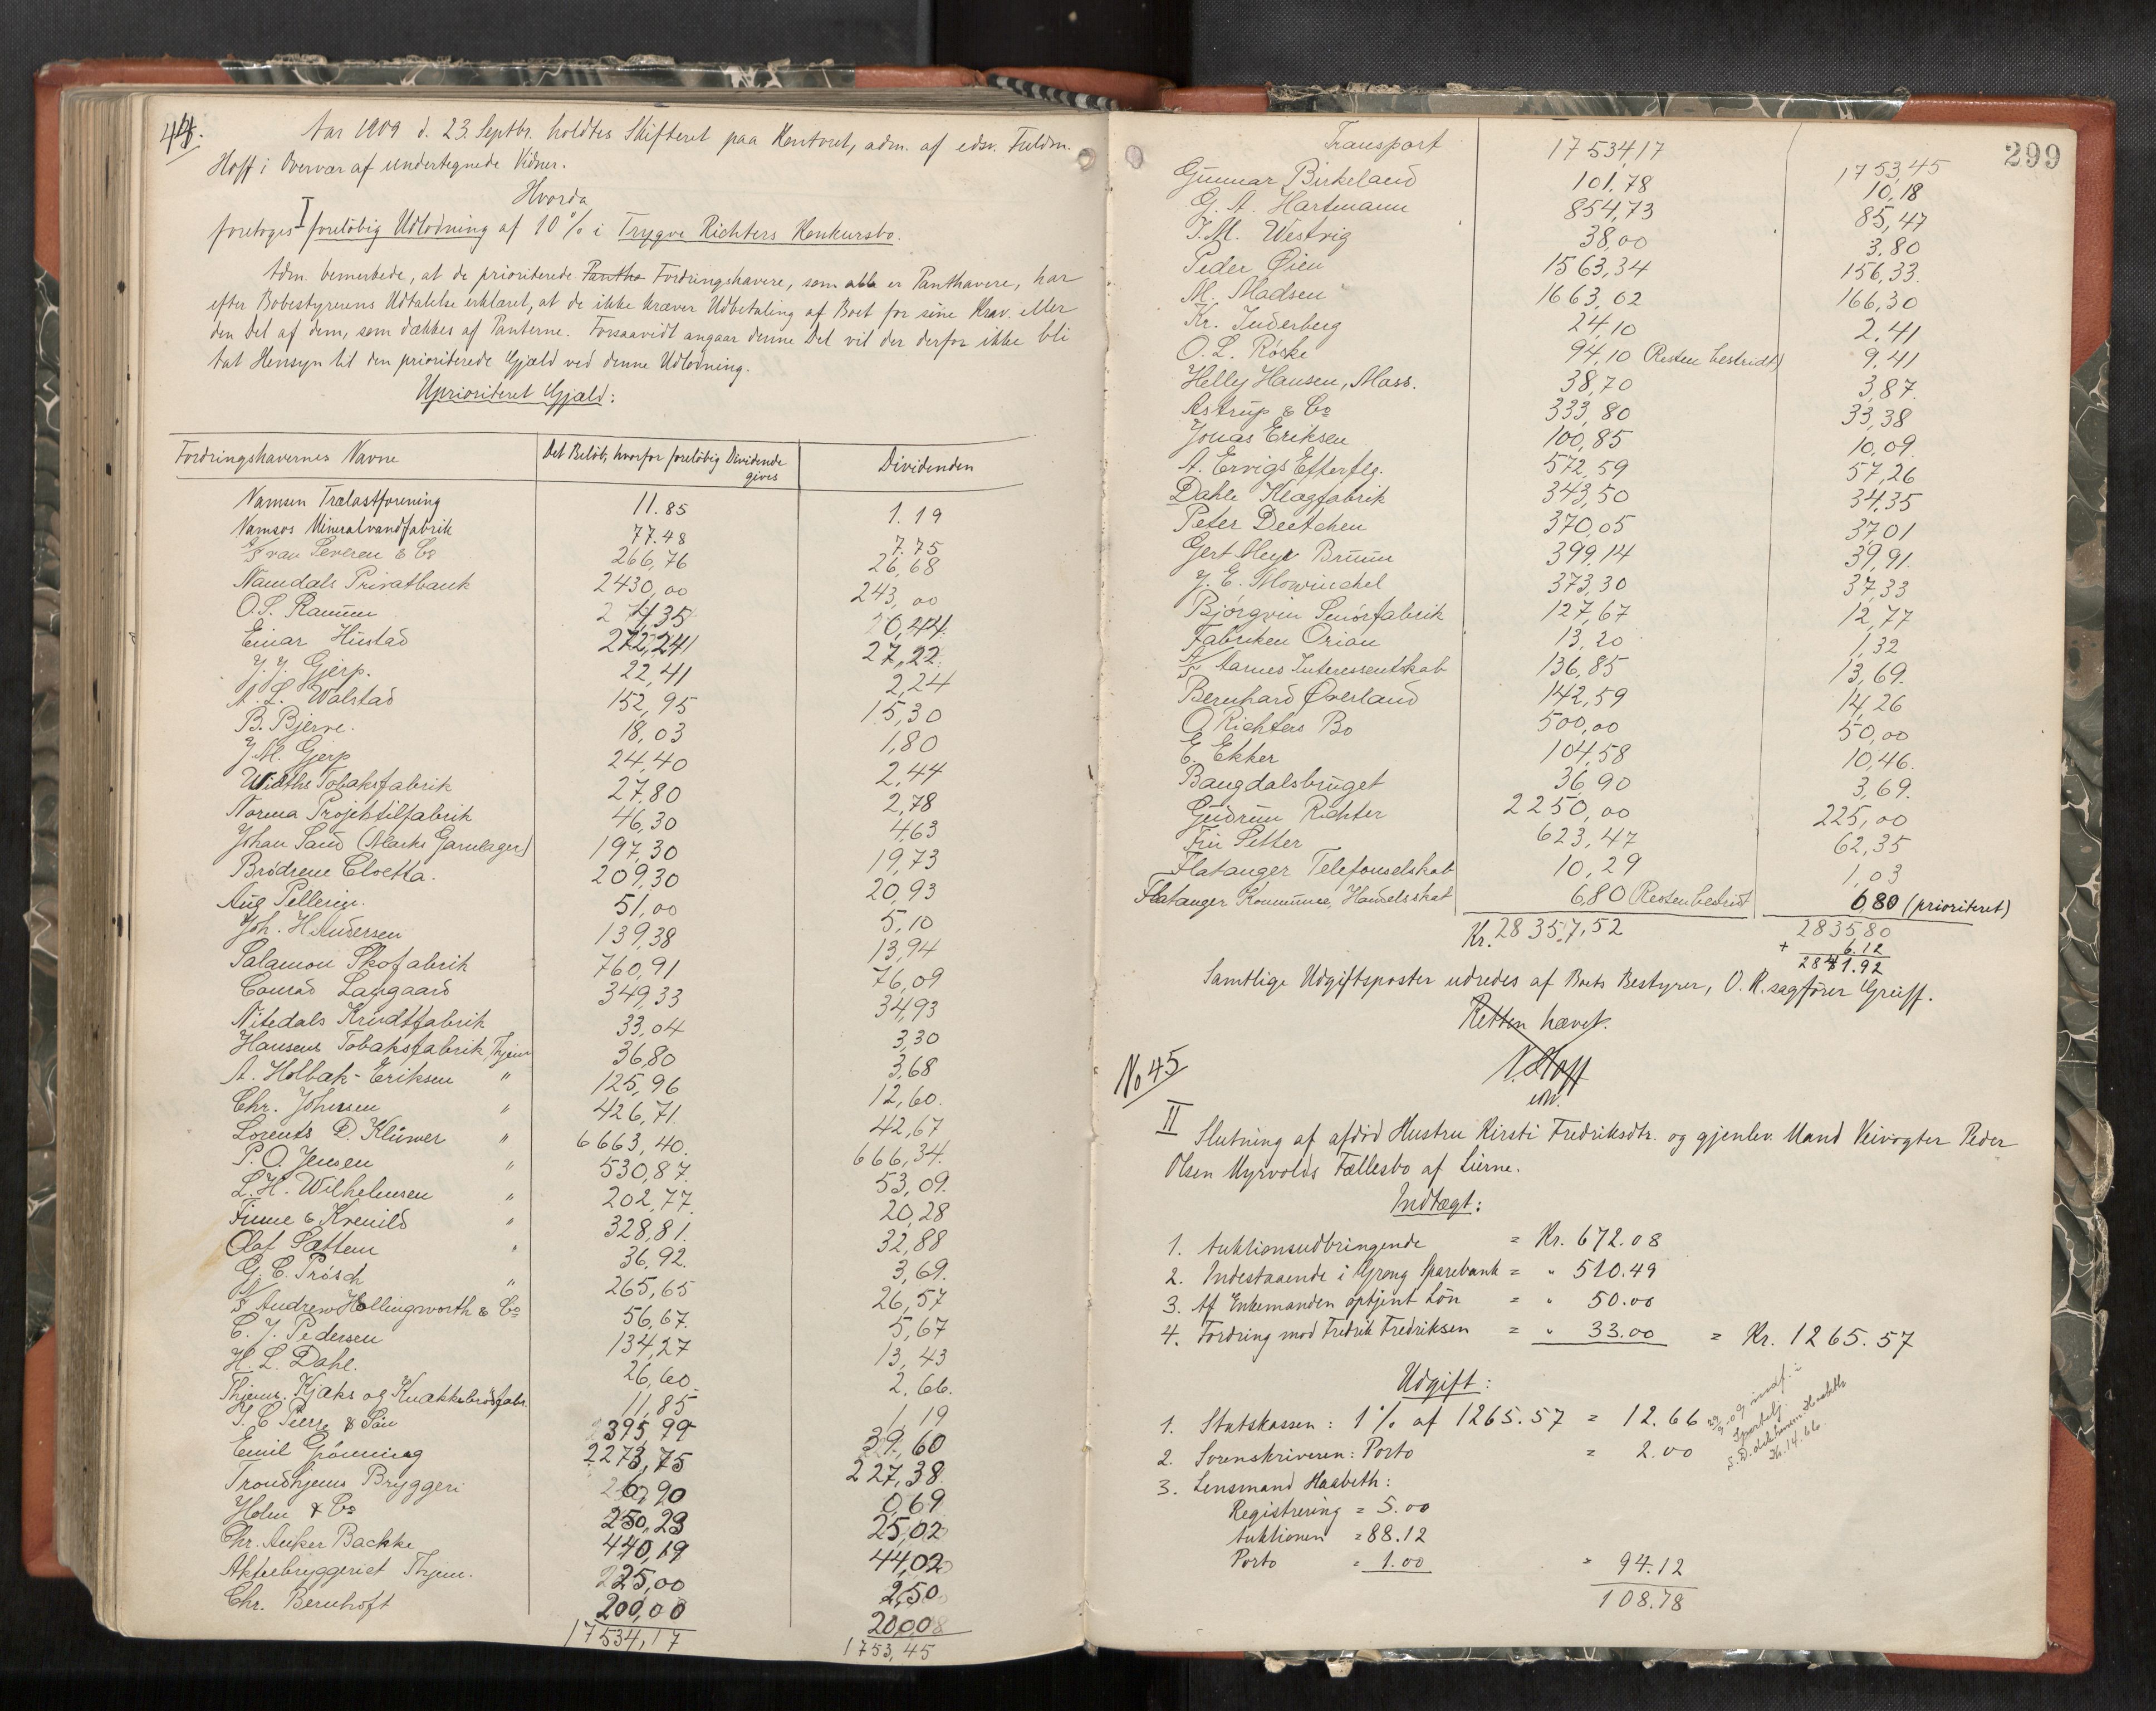 44.
Aar 1909 d. 23. Septbr. holdtes Skifteret paa Kontoret, adm. af edsv. Fuldm.
Hoff i Overvær af undertegnede Vidner.
Hvorda
foretoges I foreløbig Udlodning af 10 % i Trygve Richters Konkursbo.
Adm. bemerkede, at de prioriterede Pantha Fordringshavere, som alle er Panthavere, har
efter Bobestyrerens Udtalelse erklæret, at de ikke kræver Udbetaling af Boet for sine Krav eller
den Del af dem, som dækkes af Panterne. Forsaavidt angaar denne Del vil der derfor ikke bli
tat Hensyn til den prioriterede Gjæld ved denne Udlodning.
Uprioriteret Gjæld:
Fordringshavernes Navne Det Beløb, hvorfor foreløbig Dividende gives Dividenden
Namsen Trælastforening 11.85 1.19
Namsos Mineralvandfabrik 77.48 7.75
A/S van Severen & Co 266,76 26,68
Namdals Privatbank 2430,00 243,00
O. S. Ramm 4,35 0,44
Einar Hustad 272,24 27,22
J. J. Gjerp. 22,41 2,24
A. L. Walstad 152,95 15,30
B. Bjerve. 18,03 1,80
J. M. Gjerp 24,40 2,44
Widths Tobaksfabrik 27,80 2,78
Norma Projektilfabrik 46,30 4,63
Johan Sand (Marks Garnlager) 197,30 19,73
Brødrene Cloetta. 209,30 20,93
Aug Pellerin. 51,00 5,10
Joh. H. Andersen 139,38 13,94
Salamon Skofabrik 760,91 76,09
Conrad Langaard 349,33 34,93
Nitedals Krudtfabrik 33,04 3,30
Hansens Tobaksfabrik, Thjem 36,80 3,68
A. Holbak-Eriksen " 125,96 12,60.
Chr. Johnsen " 426,71. 42,67
Lorents D. Klüwer " 6663,40. 666,34.
P. O. Jensen " 530,87. 53,09.
L. H. Wilhelmsen " 202,77. 20,28
Finne & Krenild " 328,81. 32,88
Olaf Sættem " 36,92. 3,69.
G. C. Prösch " 265,65 26,57
A/S Andrew Hollingworth & Co 56,67. 5,67
C. J. Pedersen 134,27 13,43
H. L. Dahl. 26,60 2.66.
Thjems. Kjæks og Knækkebrødfabr. 11,85 1,19
I. C Piene & Søn 395,99 39,60
Emil Grönning 2273,75 227,38.
Trondhjems Bryggeri 6,90 0,69
Holm & Co 250,23 25,02
Chr. Anker Bachke 440,19 44,02
Aktiebryggeriet Thjem. 25,00 2,50
Chr. Bernhoft 200,00 20,00
17534,17 1753,45
299
Transport 17534,17 1753,45
Gunnar Birkeland 101,78 10,18
G. A. Hartmann 854,73 85,47
I. M. Westvig 38,00 3.80
Peder Øien 1563,34 156,33.
M. Madsen 1663,02 166,30
Kr. Inderberg 24,10 2,41
O. L. Røske 94,10 (Resten bestridt) 9,41
Helly Hansen, Moss. 38,70 3,87.
Astrup & Co 333,80 33,38
Jonas Eriksen 100,85 10,09.
A. Ervigs Efterflg. 572,59 57,26
Dahle Klogfabrik 343,50 34,35
Peter Deetchen 370,05 37,01
Gert Meyr Bruun 399,14 39,91.
J. E. Mowinckel 373,30 37,33
Bjørgvin Smørfabrik 127,67 12,77
Fabriken Orian 13,20 1,32
A/S Aarnes Interessentskab 136,85 13,69.
Bernhard Øverland 142,59 14,26
O Richters Bo 500,00 50,00
E. Ekker 104,58 10,46.
Baugdalsbruget 36 90 3,69.
Gudrun Richter 2250,00 225,00
Fru Setter 623,47 62,35
Flatanger Telefonselskab 10,29 1,03
Flatanger Kommune, Handelsskat 6,80 Resten bestridt 6,80 (prioriteret)
Kr. 28357,52 2835,80
+ 6.12
2841.92
Samtlige Udgiftsposter udredes af Boets Bestyrer, O. R. sagfører Greiff.
Retten hævet.
N. Hoff
edv.
No 45
II Slutning af afdød Hustru Kirsti Fredriksdtr. og gjenlev. Mand Veivogter Peder
Olsen Myrvolds Fællesbo af Lierne.
Indtægt:
1. Auktionsudbringende = Kr. 672.08
2. Indestaaende i Grong Sparebank = " 510.49
3. Af Enkemanden optjent Løn = " 50.00
4. Fordring mod Fredrik Fredriksen = " 33.00 = Kr. 1265.57
Udgift:
1. Statskassen: 1 % af 1265.57 = 12.66
2. Sorenskriveren: Porto = 2.00
3. Lensmand Haabeth:
Registrering = 5.00
Auktionen = 88.12
Porto = 1.00 = 94.12
108.78
Kr. 14.66